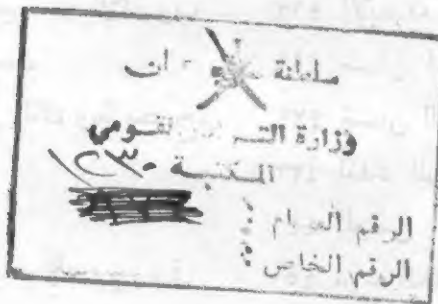 سلطنة عمان
وزارة التراث القومي
المكتبة ١٢٣٠
الرقم العام :
الرقم الخاص :